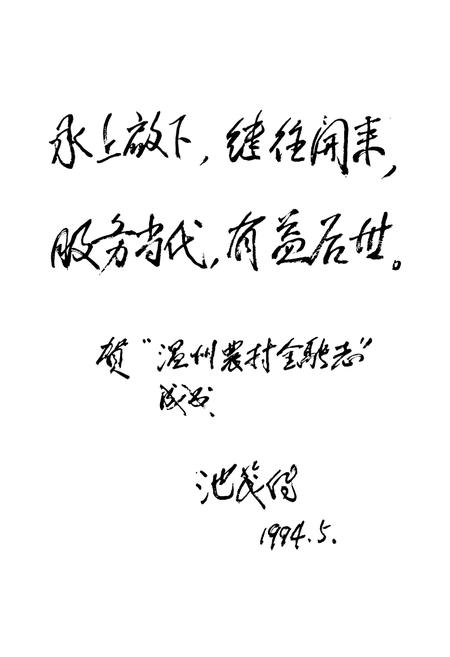 承上启下，继往开来，
服务当代，有益后世。
贺“温州農村金融志”
成书
池茂
1994.5.